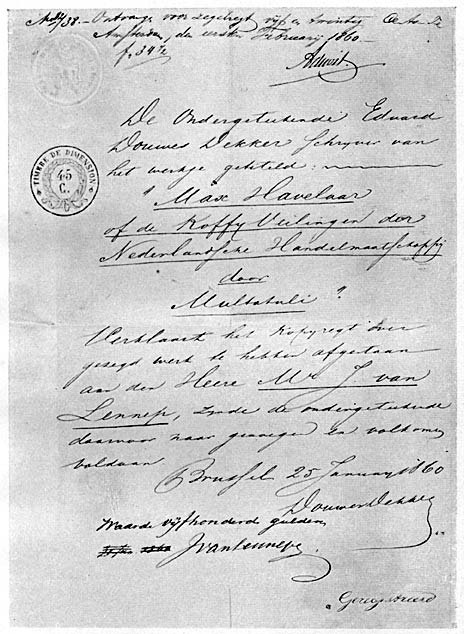 Ontvangen voor zegelregt vijf en twintig
Amsterdam, den eersten Februarij 1860.
f. 34
TIMBRE DE DIMENSION
45
C.
De Ondergeteekende Eduard
Douwes Dekker Schrijver van
het werkje getiteld:
"Max Havelaar
of de Koffy Veilingen der
Nederlandsche Handelmaatschappij
door
Multatuli"
Verklaart het kopyregt over
gezegd werk te hebben afgestaan
aan den Heere Mr J. van
Lennep, zynde de ondergeteekende
daarvoor naar genoegen en volkomen
voldaan
Brussel 25 January 1860
Douwes Dekker
Waarde vijfhonderd gulden
JvanLennep
Geregistreerd